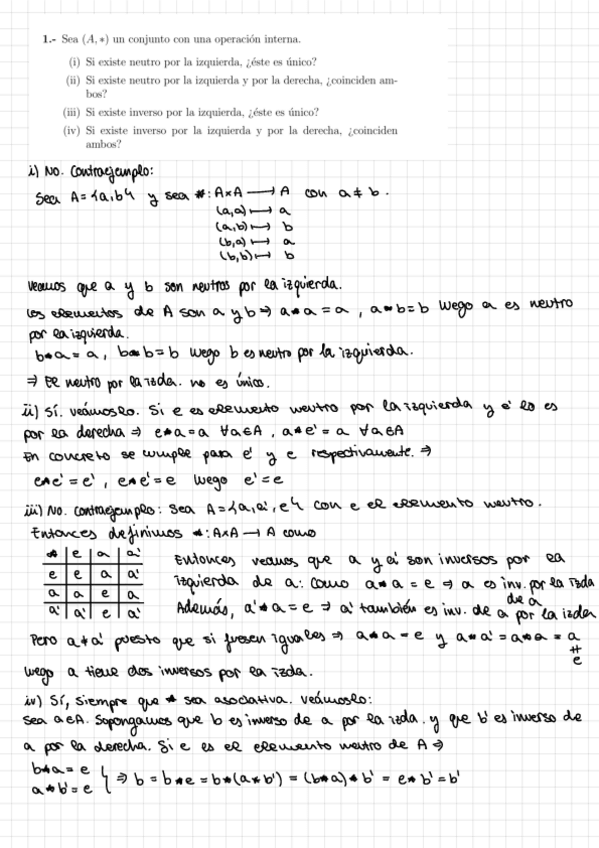 1.- Sea (A, ∗) un conjunto con una operación interna.
(i) Si existe neutro por la izquierda, ¿éste es único?
(ii) Si existe neutro por la izquierda y por la derecha, ¿coinciden am-
bos?
(iii) Si existe inverso por la izquierda, ¿éste es único?
(iv) Si existe inverso por la izquierda y por la derecha, ¿coinciden
ambos?
i) No. Contraejemplo:
Sea A={a,b} y sea *: A×A → A con a≠b.
(a,a) ↦ a
(a,b) ↦ b
(b,a) ↦ a
(b,b) ↦ b
Veamos que a y b son neutros por la izquierda.
Los elementos de A son a y b ⇒ a*a=a, a*b=b luego a es neutro
por la izquierda.
b*a=a, b*b=b luego b es neutro por la izquierda.
⇒ El neutro por la izda. no es único.
ii) Sí. Veámoslo. Si e es elemento neutro por la izquierda y e' lo es
por la derecha ⇒ e*a=a ∀a∈A, a*e'=a ∀a∈A
En concreto se cumple para e' y e respectivamente. ⇒
e*e'=e', e*e'=e luego e'=e
iii) No. Contraejemplo: Sea A={a,a',e} con e el elemento neutro.
Entonces definimos *: A×A → A como
* | e | a | a'
e | e | a | a'
a | a | e | a
a' | a' | e | a
Entonces vemos que a y a' son inversos por la
izquierda de a: Como a*a=e ⇒ a es inv. por la izda
de a
Además, a'*a=e ⇒ a' también es inv. de a por la izda
Pero a≠a' puesto que si fuesen iguales ⇒ a*a=e y a*a'=a*a=a
≠
e
Luego a tiene dos inversos por la izda.
iv) Sí, siempre que * sea asociativa. Veámoslo:
Sea a∈A. Supongamos que b es inverso de a por la izda. y que b' es inverso de
a por la derecha. Si e es el elemento neutro de A ⇒
b*a=e
a*b'=e } ⇒ b=b*e=b*(a*b')=(b*a)*b'=e*b'=b'